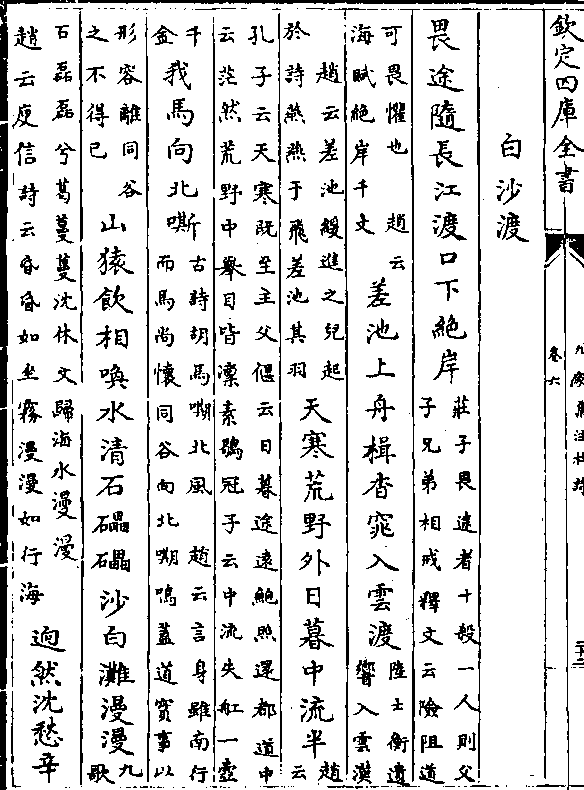 欽定四庫全書
卷六
九家集注杜詩
白沙渡
畏途隨長江渡口下絕岸
莊子畏途者十殺一人則父
子兄弟相戒釋文云險阻道
可畏懼也　趙云
海賦絕岸千丈
差池上舟楫杳窕入雲漢
陸士衡遺
響入雲漢
趙云差池緩進之皃起
於詩燕燕于飛差池其羽
天寒荒野外日暮中流半
趙
云
孔子云天寒既至主父偃云日暮途遠鮑照還都道中
云茫然荒野中舉目皆凜素鶡冠子云中流失舡一壺
千
金
我馬向北嘶
古詩胡馬嘶北風　趙云言身雖南行
而馬尚懷同谷向北嘶鳴蓋道實事以
形容離同谷
之不得已
山猿飲相喚水清石礧礧沙白灘漫漫
九
歌
石磊磊兮葛蔓蔓沈休文歸海水漫漫
趙云庾信詩云昏昏如坐霧漫漫如行海
逈然洗愁辛